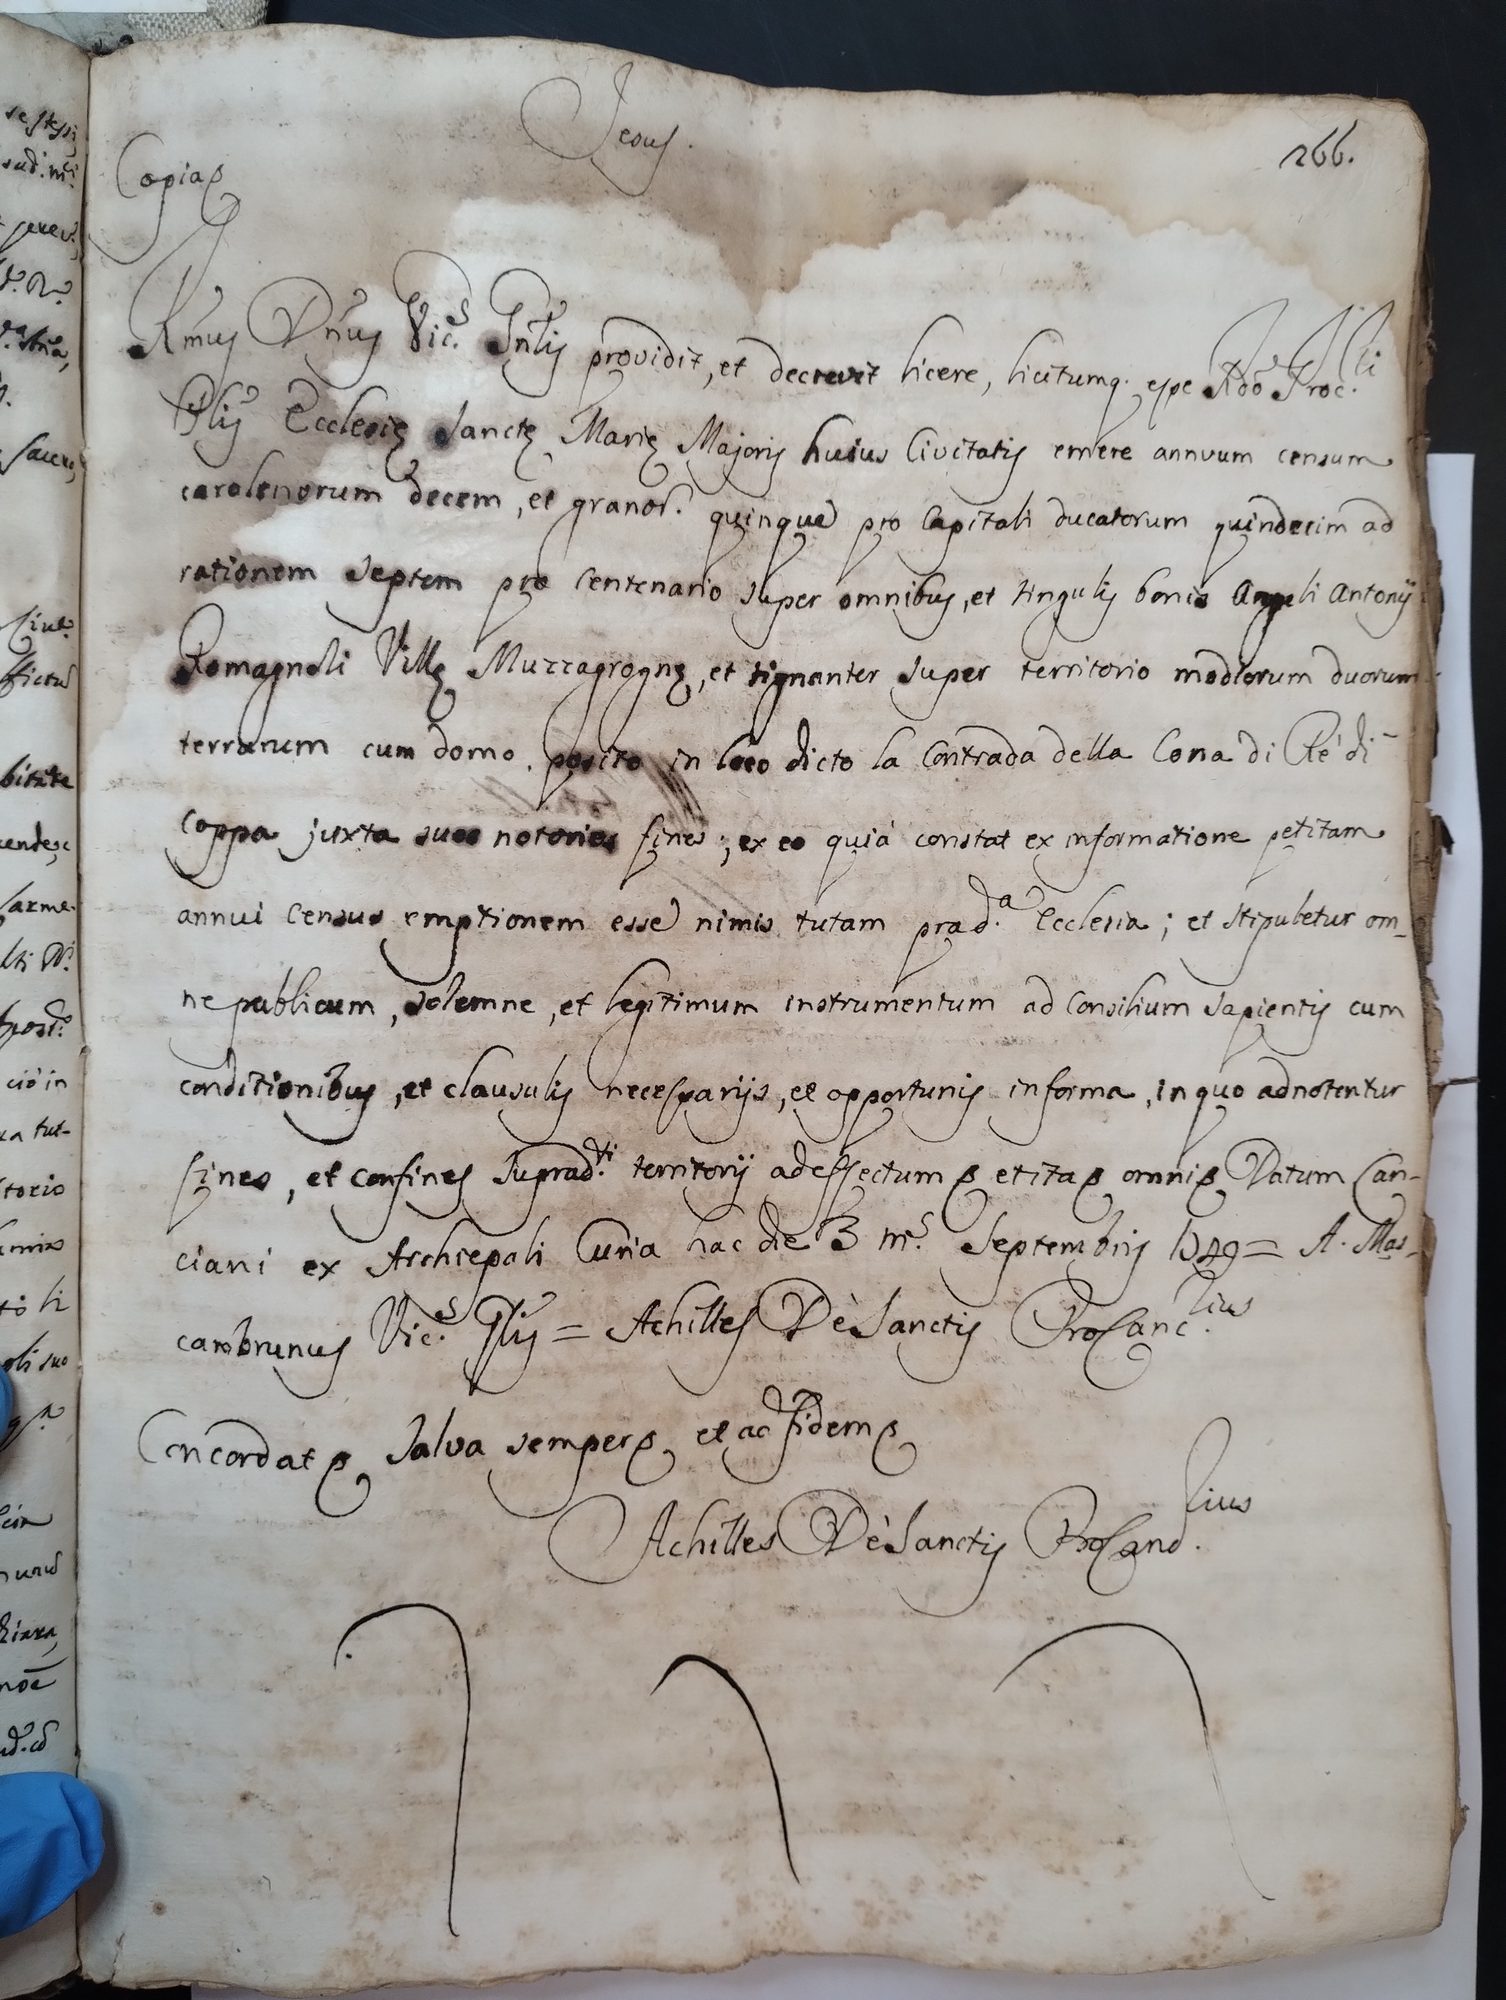 Jesus.
266.
Copia
Rmus Dnus Vic.s Gnlis providit, et decrevit licere, licitumq. esse Rdo Proc.li
Ecclesię Sanctę Marię Majoris huius Civitatis emere annuum censum
carolenorum decem, et granor. quinque pro Capitali ducatorum quindecim ad
rationem septem pro Centenario super omnibus, et singulis bonis Angeli Antonij
Romagnoli Villę Muzzagrognę, et signanter super territorio modiorum duorum
terrarum cum domo posito in loco dicto la Contrada della Cona di Ré di
Coppa juxta suos notorios fines; ex eo quià constat ex informatione petitam
annui Census emptionem esse nimis tutam prad.a Ecclesia; et stipuletur om-
ne publicum, solemne, et legitimum instrumentum ad Consilium Sapientis cum
conditionibus, et clausulis necessarijs, et opportunis in forma, in quo adnotentur
fines, et confines suprad.ti territorij ad effectum et ita omni Datum Lan-
ciani ex Archiepali Curia hac die 3 m.s Septembris 1749= A. Mas-
cambrunus Vic.s Glis= Achilles De Sanctis ProCanc.lius
Concordat salva semper et ad fidem
Achilles De Sanctis ProCanc.lius